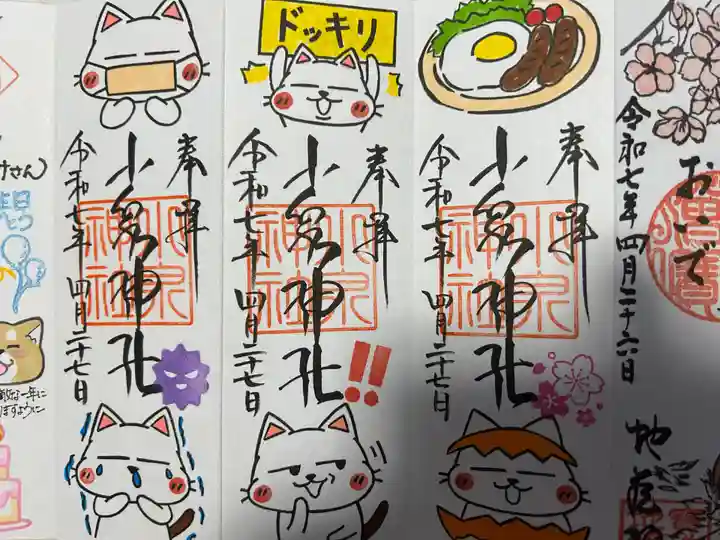 おいで
令和七年四月二十六日
奉拝
小泉神社
小泉
神社
令和七年 四月二十七日
ドッキリ
奉拝
小泉神社
小泉
神社
令和七年 四月二十七日
!!
奉拝
小泉神社
小泉
神社
令和七年 四月二十七日
けさん)
敵な一年に
ますように